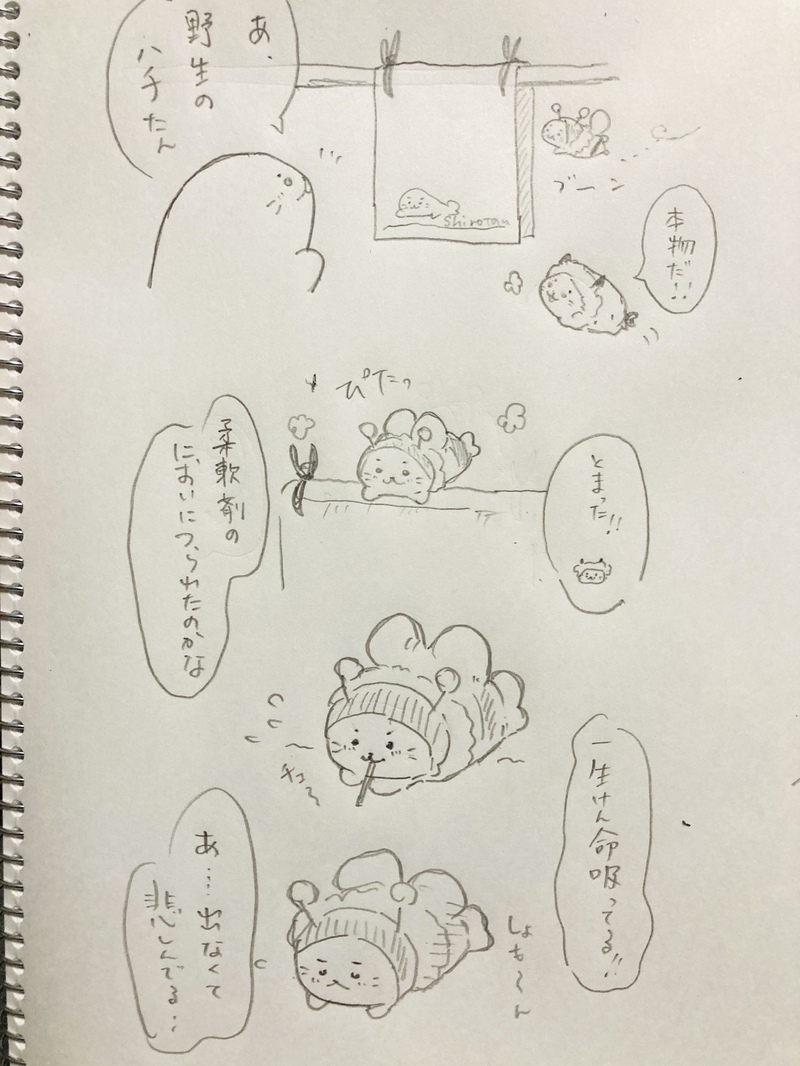 あ、
野生の
ハチたん
shirotan
ブーン
本物だ!!
ぴたっ
とまった!!
柔軟剤の
においにつられたのかな
チュ〜
一生けん命吸ってる!!
しょも〜ん
あ…出なくて
悲しんでる…